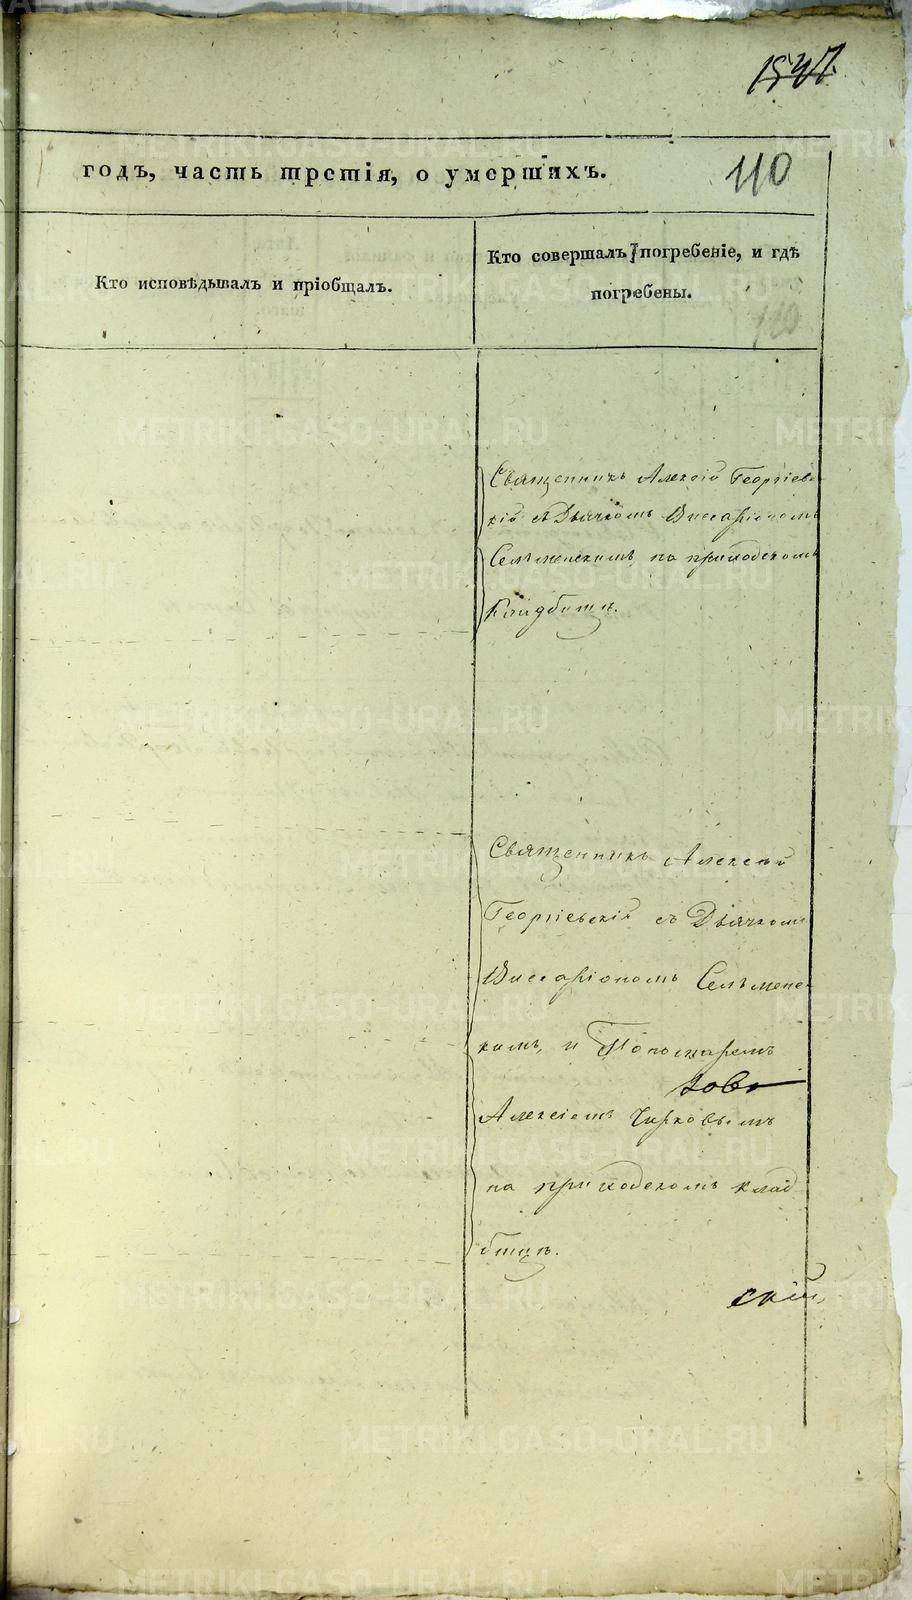 1547.
годъ, часть третія, о умершихъ.
110
Кто исповѣдывалъ и пріобщалъ.
Кто совершалъ погребеніе, и гдѣ
погребены.
110
Священникъ Алексій Георгіев-
кій съ Дьячкомъ Виссаріономъ
на приходскомъ
Кладбищѣ.
Священникъ Алексій
Георгіевскій съ Дьячкомъ
Виссаріономъ
кимъ, и Пономаремъ
зовъ
Алексіемъ Чирковымъ
на приходскомъ клад
бищѣ.
скій
METRIKI.GASO-URAL.RU